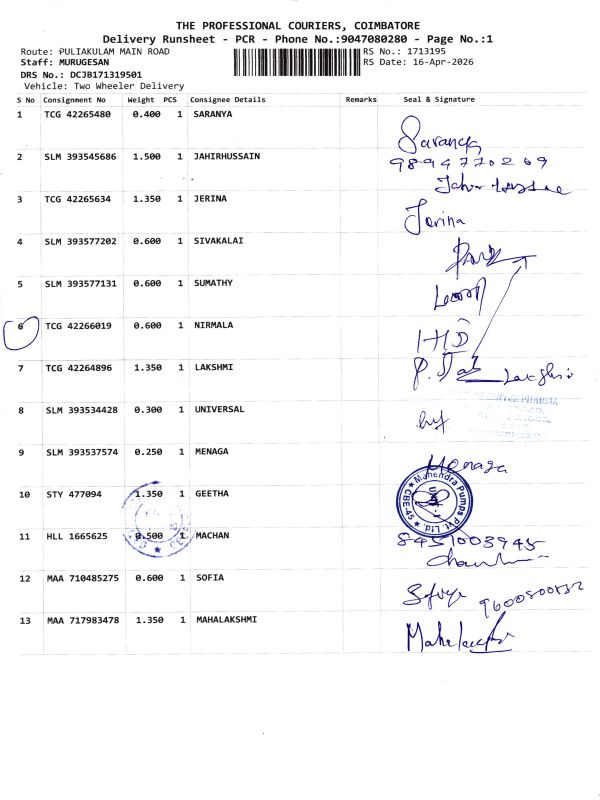 THE PROFESSIONAL COURIERS, COIMBATORE
Delivery Runsheet - PCR - Phone No.:9047080280 - Page No.:1
Route: PULIAKULAM MAIN ROAD RS No.: 1713195
Staff: MURUGESAN RS Date: 16-Apr-2026
DRS No.: DCJB171319501
Vehicle: Two Wheeler Delivery
S No Consignment No Weight PCS Consignee Details Remarks Seal & Signature
1 TCG 42265480 0.400 1 SARANYA
Saranya
2 SLM 393545686 1.500 1 JAHIRHUSSAIN
9894770269
3 TCG 42265634 1.350 1 JERINA
Jerina
4 SLM 393577202 0.600 1 SIVAKALAI
5 SLM 393577131 0.600 1 SUMATHY
6 TCG 42266019 0.600 1 NIRMALA
7 TCG 42264896 1.350 1 LAKSHMI
8 SLM 393534428 0.300 1 UNIVERSAL
9 SLM 393537574 0.250 1 MENAGA
Menaga
10 STY 477094 1.350 1 GEETHA
Mahendra Pumps Pvt. Ltd. CBE-45
11 HLL 1665625 0.500 1 MACHAN
8451003945
12 MAA 710485275 0.600 1 SOFIA
13 MAA 717983478 1.350 1 MAHALAKSHMI